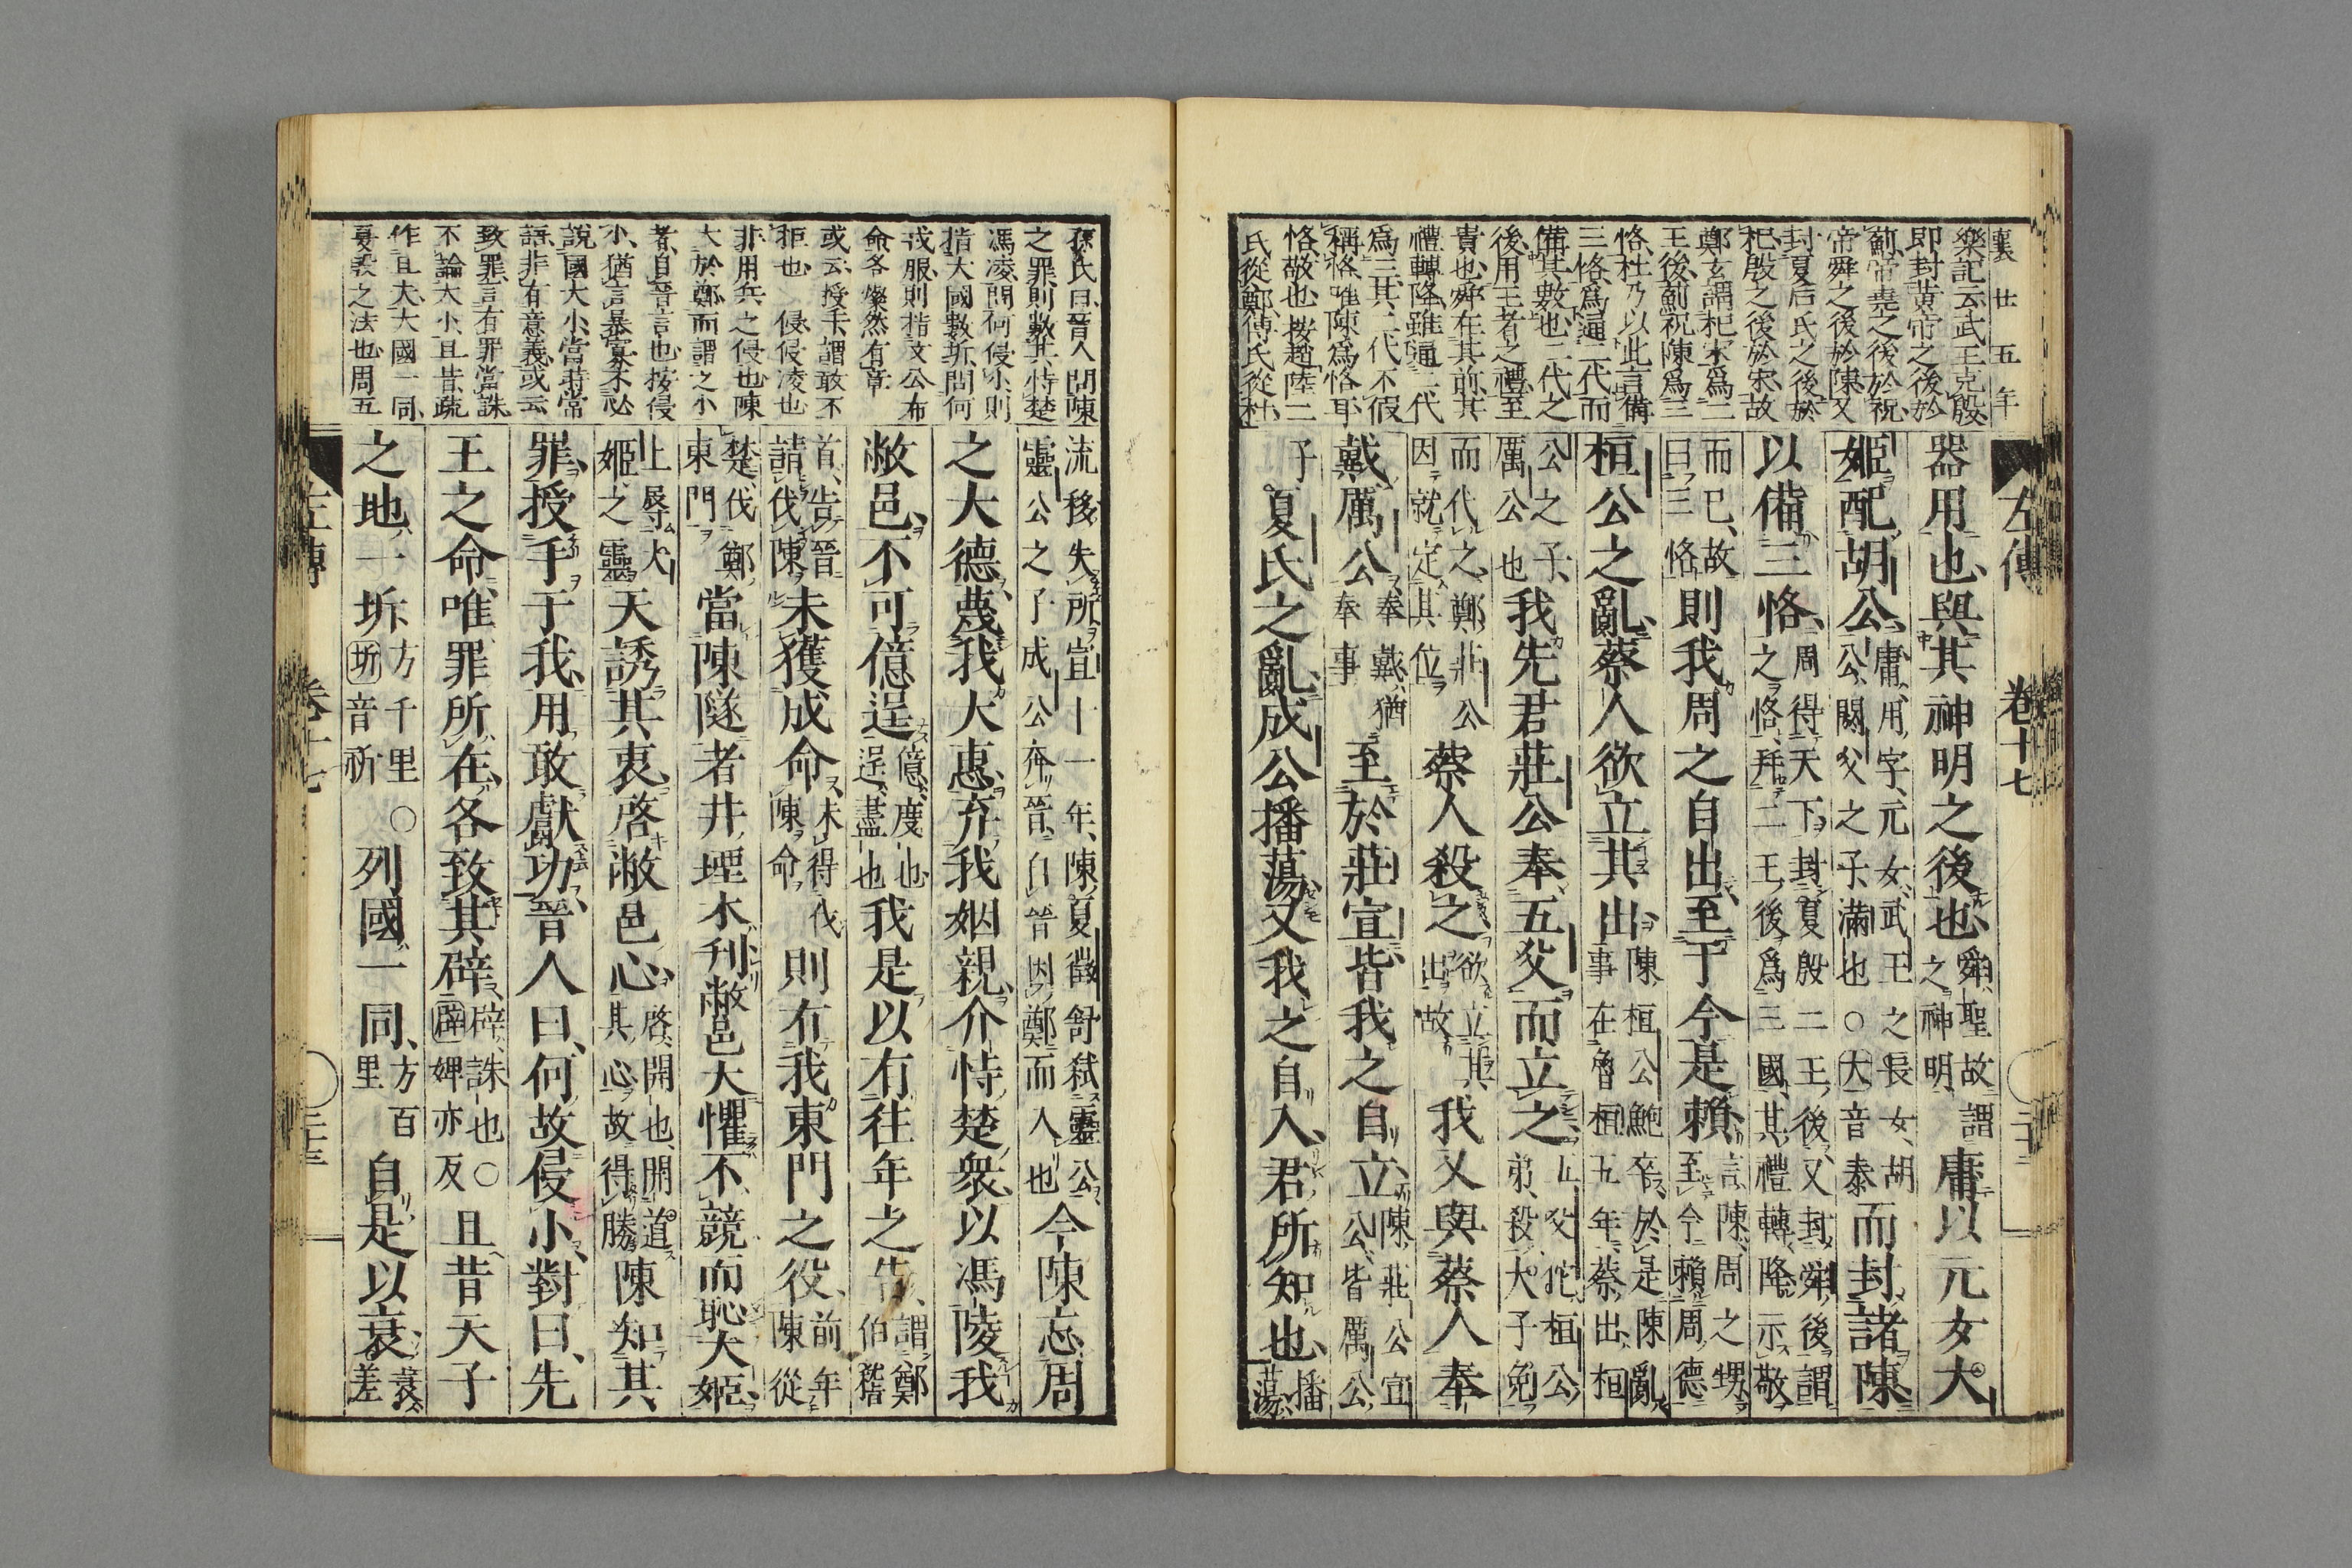 襄廿五年
樂記云武王克殷
即封黃帝之後於
薊帝堯之後於祝
帝舜之後於陳又
封夏后氏之後於
杞殷之後於宋故
鄭玄謂杞宋爲二
王後薊祝陳爲三
恪杜乃以此言備
三恪爲通二代而
備其數也二代之
後用王者之禮至
貴也舜在其前其
禮轉降雖通二代
爲三其二代不假
稱恪唯陳爲恪耳
恪敬也按趙陸二
氏從鄭傅氏從杜
左傳 卷十七 二十二
器用也與其神明之後也舜聖故謂之神明庸以元女大
姬配胡公庸用字元女武王之長女胡公閼父之子滿也○大音泰而封諸陳
以備三恪周得天下封夏殷二王後又封舜後謂之恪拜二王後爲三國其禮轉降示敬
而已故曰三恪則我周之自出至于今是賴言陳周之甥至今賴周德
桓公之亂蔡人欲立其出陳桓公鮑卒於是陳亂事在魯桓五年蔡出桓
公之子厲公也我先君莊公奉五父而立之五父佗桓公弟殺大子免
而代之鄭莊公因就定其位蔡人殺之欲立其出故我又與蔡人奉
戴厲公奉戴猶奉事至於莊宣皆我之自立陳莊公宣公皆厲公
子夏氏之亂成公播蕩又我之自入君所知也播蕩
孫氏曰晉人問陳
之罪則數其恃楚
馮凌問何侵小則
指大國數圻問何
戎服則指文公布
命各燦然有章
或云授手謂敢不
拒也 侵侵凌也
非用兵之侵也陳
大於鄭而謂之小
者自晉言也按侵
小猶言暴寡不必
說國大小當時常
語非有意義或云
致罪言有罪當誅
不論大小且昔疏
作且夫大國一同
夏殷之法也周五
流移失所宣十一年陳夏徵舒弑靈公靈公之子成公奔晉自晉因鄭而入也今陳忘周
之大德蔑我大惠弃我姻親介恃楚衆以馮陵我
敝邑不可億逞億度也逞盡也我是以有往年之告謂鄭伯稽
首告晉請伐陳未獲成命未得伐陳命則有我東門之役前年陳從
楚伐鄭東門當陳隧者井堙木刊敝邑大懼不競而恥大姬
上辱大姬之靈天誘其衷啓敝邑心啓開也開道其心故得勝陳知其
罪授手于我用敢獻功晉人曰何故侵小對曰先
王之命唯罪所在各致其辟辟誅也○辟婢亦反且昔天子
之地一圻方千里○圻音祈列國一同方百里自是以衰衰差
左傳 卷十七 二十三